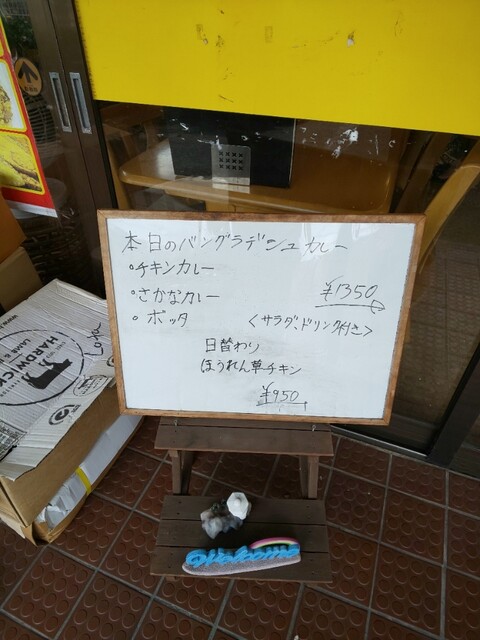 本日のバングラデシュカレー
・チキンカレー
・さかなカレー
¥1350
・ボッタ
<サラダ、ドリンク付き>
日替わり
ほうれん草チキン
¥950
HARDWICK
LAMB &
Welcome